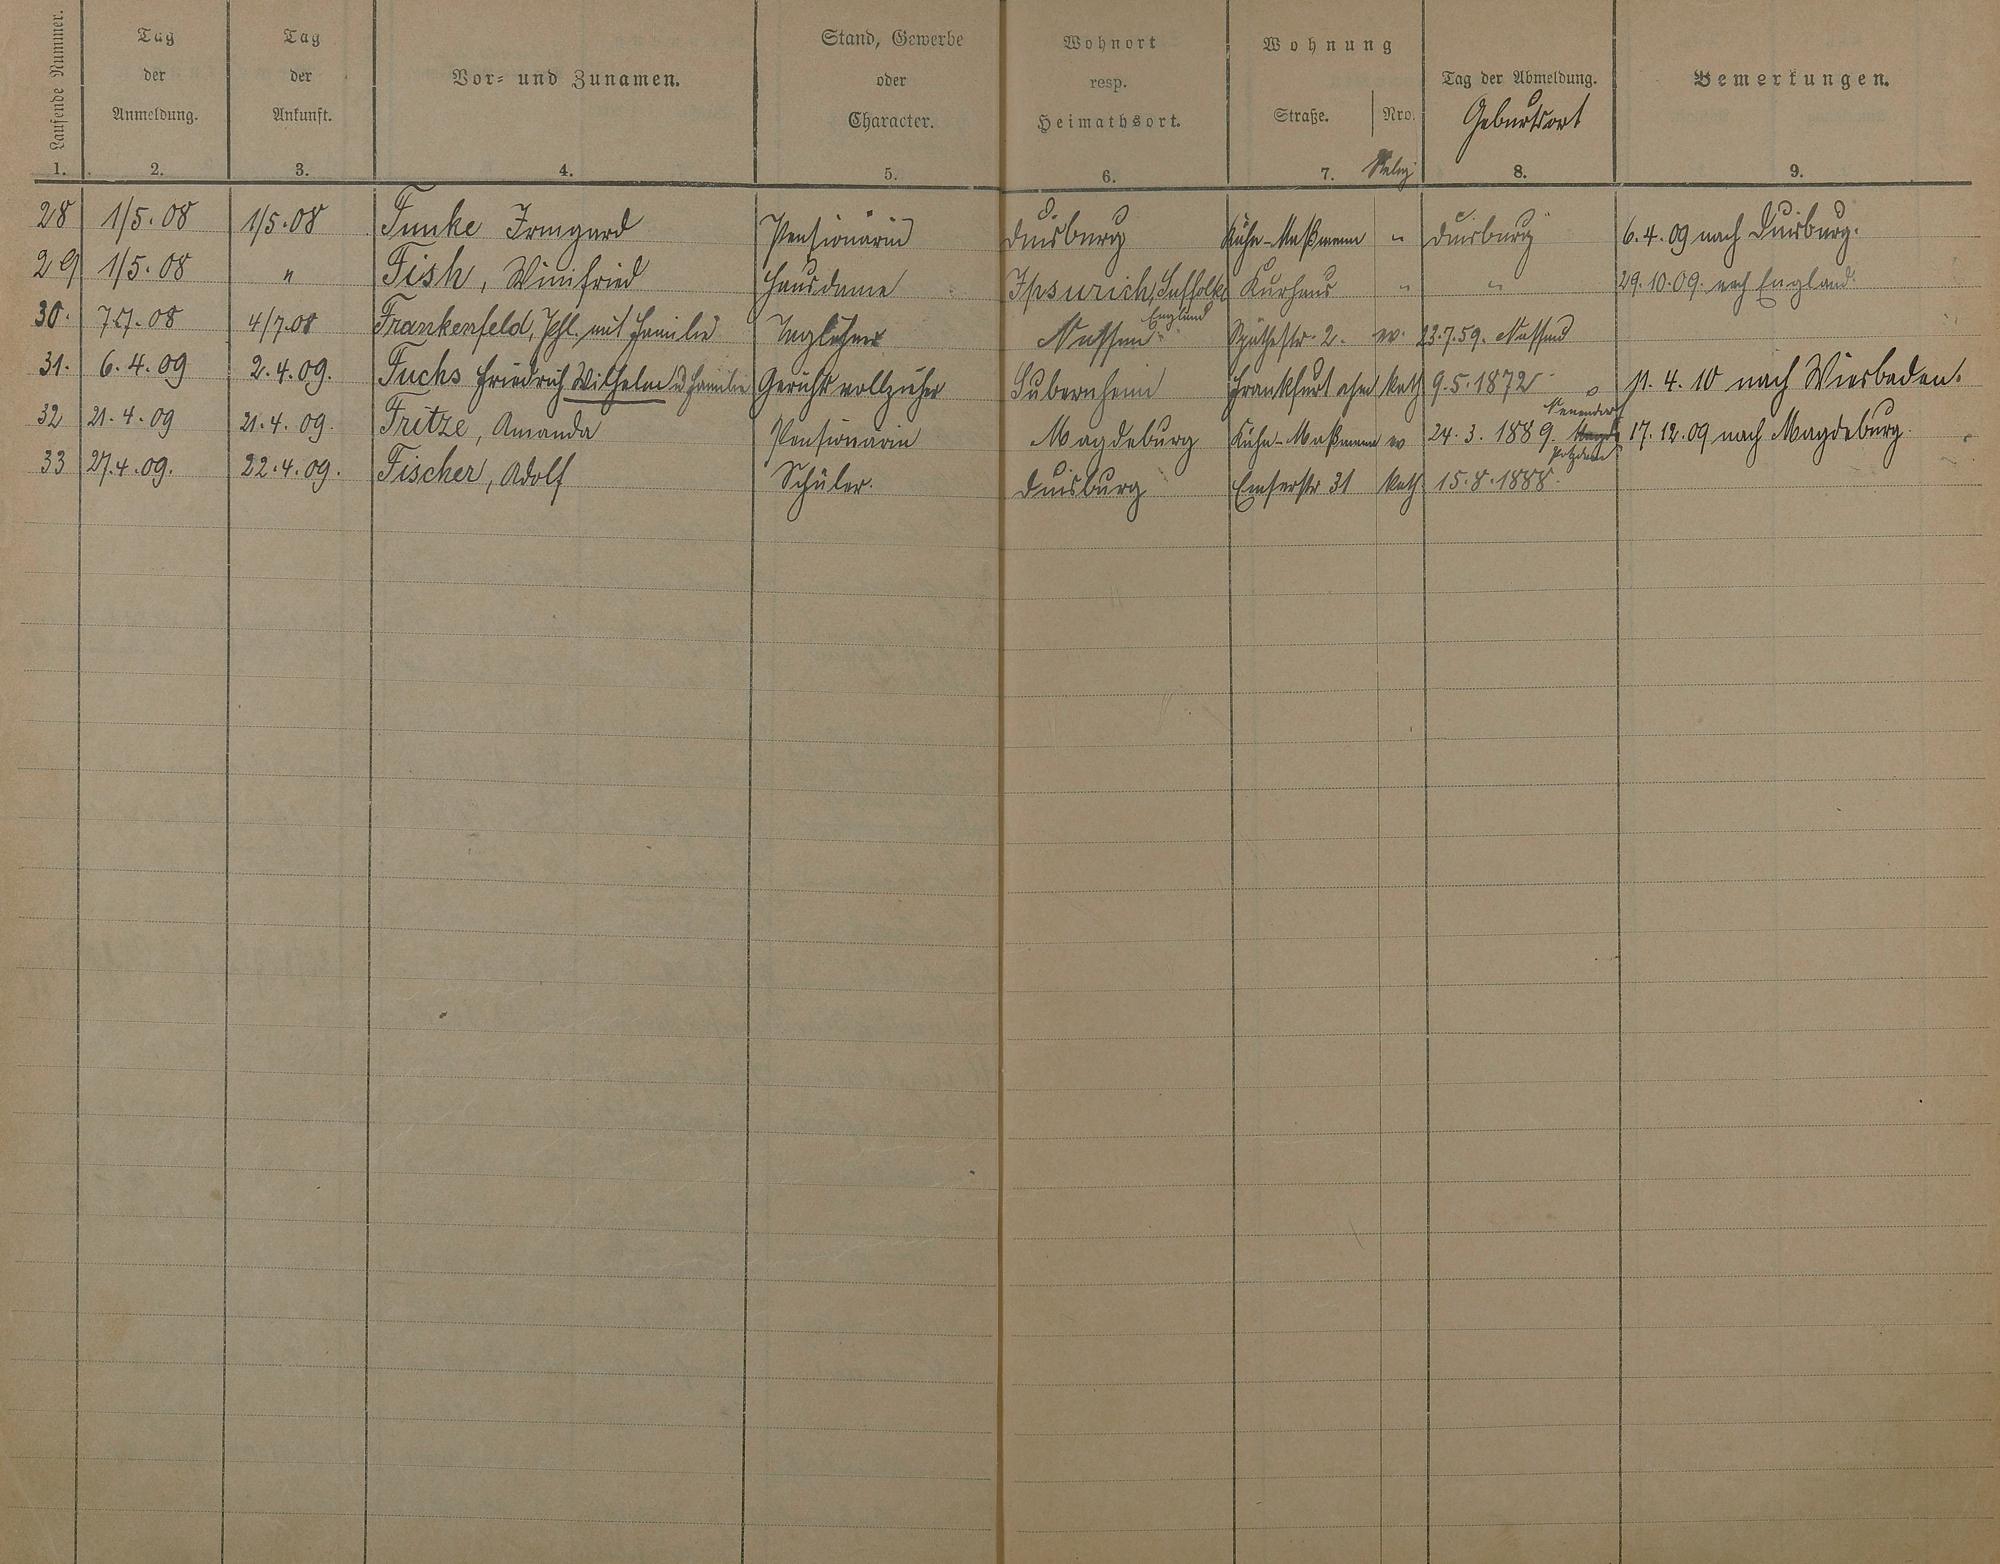 Laufende Nummer. Tag der Anmeldung. Tag der Ankunft. Vor- und Zunamen. Stand, Gewerbe oder Character. Wohnort resp. Heimathsort. Wohnung Straße. Nro. Relig Tag der Abmeldung. Geburtsort Bemerkungen.
1. 2. 3. 4. 5. 6. 7. 8. 9.
28 1/5.08 1/5.08 Funke Irmgard Pensionärin Duisburg Kühn-Maßmann " Duisburg 6.4.09 nach Duisburg.
29 1/5.08 " Fish, Winifried Hausdame Ipsurich, Suffolk England Kurhaus " " 29.10.09. nach England.
30. 7.7.08 4/7.08 Frankenfeld, Phl. mit Familie Taglöhner Nassau 2. ev. 23.7.59. Nassau
31. 6.4.09 2.4.09. Fuchs Friedrich Wilhelm u Familie Gerichtsvollzieher Frankfurt kath 9.5.1872 11.4.10 nach Wiesbaden.
32 21.4.09 21.4.09. Fritze, Amanda Pensionärin Magdeburg Kühn-Maßmann ev 24.3.1889. Potsdam 17.12.09 nach Magdeburg.
33 27.4.09. 22.4.09. Fischer, Adolf Schüler. Duisburg Emserstr 31 kath 15.8.1888.